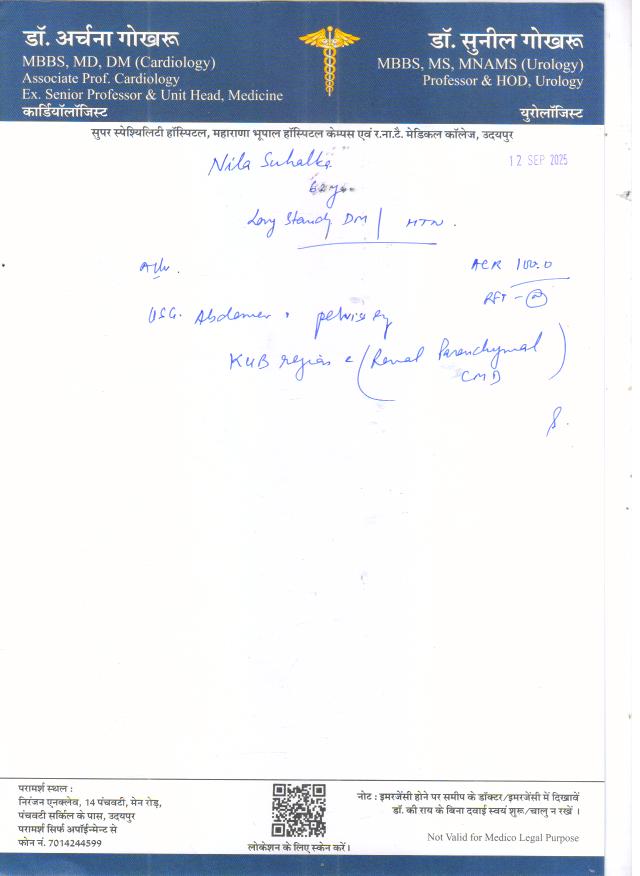 डॉ. अर्चना गोखरू
MBBS, MD, DM (Cardiology)
Associate Prof. Cardiology
Ex. Senior Professor & Unit Head, Medicine
कार्डियॉलॉजिस्ट
डॉ. सुनील गोखरू
MBBS, MS, MNAMS (Urology)
Professor & HOD, Urology
युरोलॉजिस्ट
सुपर स्पेश्यिलिटी हॉस्पिटल, महाराणा भूपाल हॉस्पिटल केम्पस एवं र.ना.टै. मेडिकल कॉलेज, उदयपुर
Nila Suhalka
12 SEP 2025
62y
Long Standy DM | HTN .
Adv.
ACR 100.0
RFT -
USG. Abdomen pelvis
KUB region c (Renal Parenchymal
CMD
परामर्श स्थल :
निरंजन एनक्लेव, 14 पंचवटी, मेन रोड़,
पंचवटी सर्किल के पास, उदयपुर
परामर्श सिर्फ अपॉईन्मेन्ट से
फोन नं. 7014244599
लोकेशन के लिए स्केन करें।
नोट : इमरजेंसी होने पर समीप के डॉक्टर/इमरजेंसी में दिखावें
डॉ. की राय के बिना दवाई स्वयं शुरू/चालु न रखें ।
Not Valid for Medico Legal Purpose